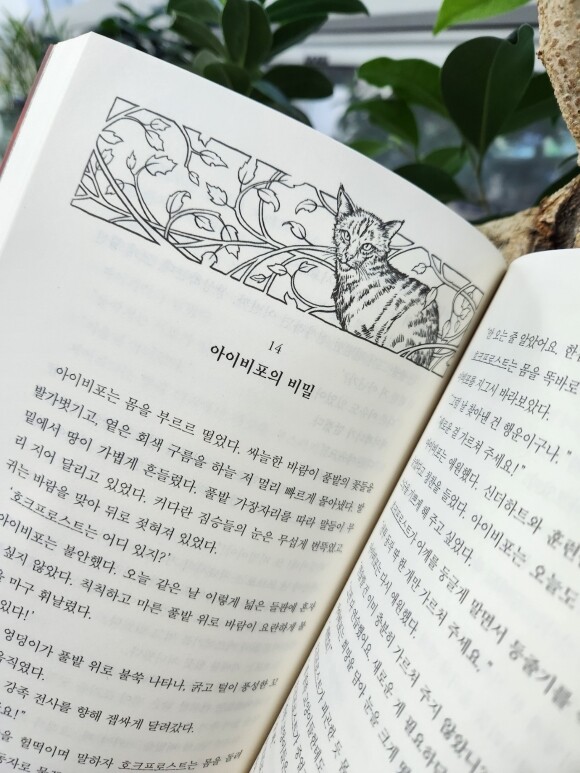 14
아이비포의 비밀
아이비포는 몸을 부르르 떨었다. 싸늘한 바람이 풀밭의 꽃들을
발가벗기고, 옅은 회색 구름을 하늘 저 멀리 빠르게 몰아냈다. 발
밑에서 땅이 가볍게 흔들렸다. 풀밭 가장자리를 따라 말들이 무
리 지어 달리고 있었다. 커다란 짐승들의 눈은 무섭게 번뜩였고,
귀는 바람을 맞아 뒤로 젖혀져 있었다.
'호크프로스트는 어디 있지?'
아이비포는 불안했다. 오늘 같은 날 이렇게 넓은 들판에 혼자
싶지 않았다. 칙칙하고 마른 풀밭 위로 바람이 요란하게 불
마구 휘날렸다.
있다!'
엉덩이가 풀밭 위로 불쑥 나타나, 굵고 털이 풍성한 꼬
움직였다.
강족 전사를 향해 잽싸게 달려갔다.
헐떡이며 말하자 호크프로스트는 몸을 돌려
안 오는 줄 알았어요.
호크프로스트는 몸을 똑바로
지그시 바라보았다.
찾아낸 건 행운이구나."
가르쳐 주세요!"
애원했다. 신더하트와 훈련
들었다. 아이비포는 오늘도
해 주고 싶었다.
어깨를 둥글게 말면서 등줄기를
한 개만 가르쳐 주세요."
다시 애원했다.
충분히 가르쳐 주지 않았니
연습했어요. 새로운 게 필요하다
희망을 담아 눈을 크게